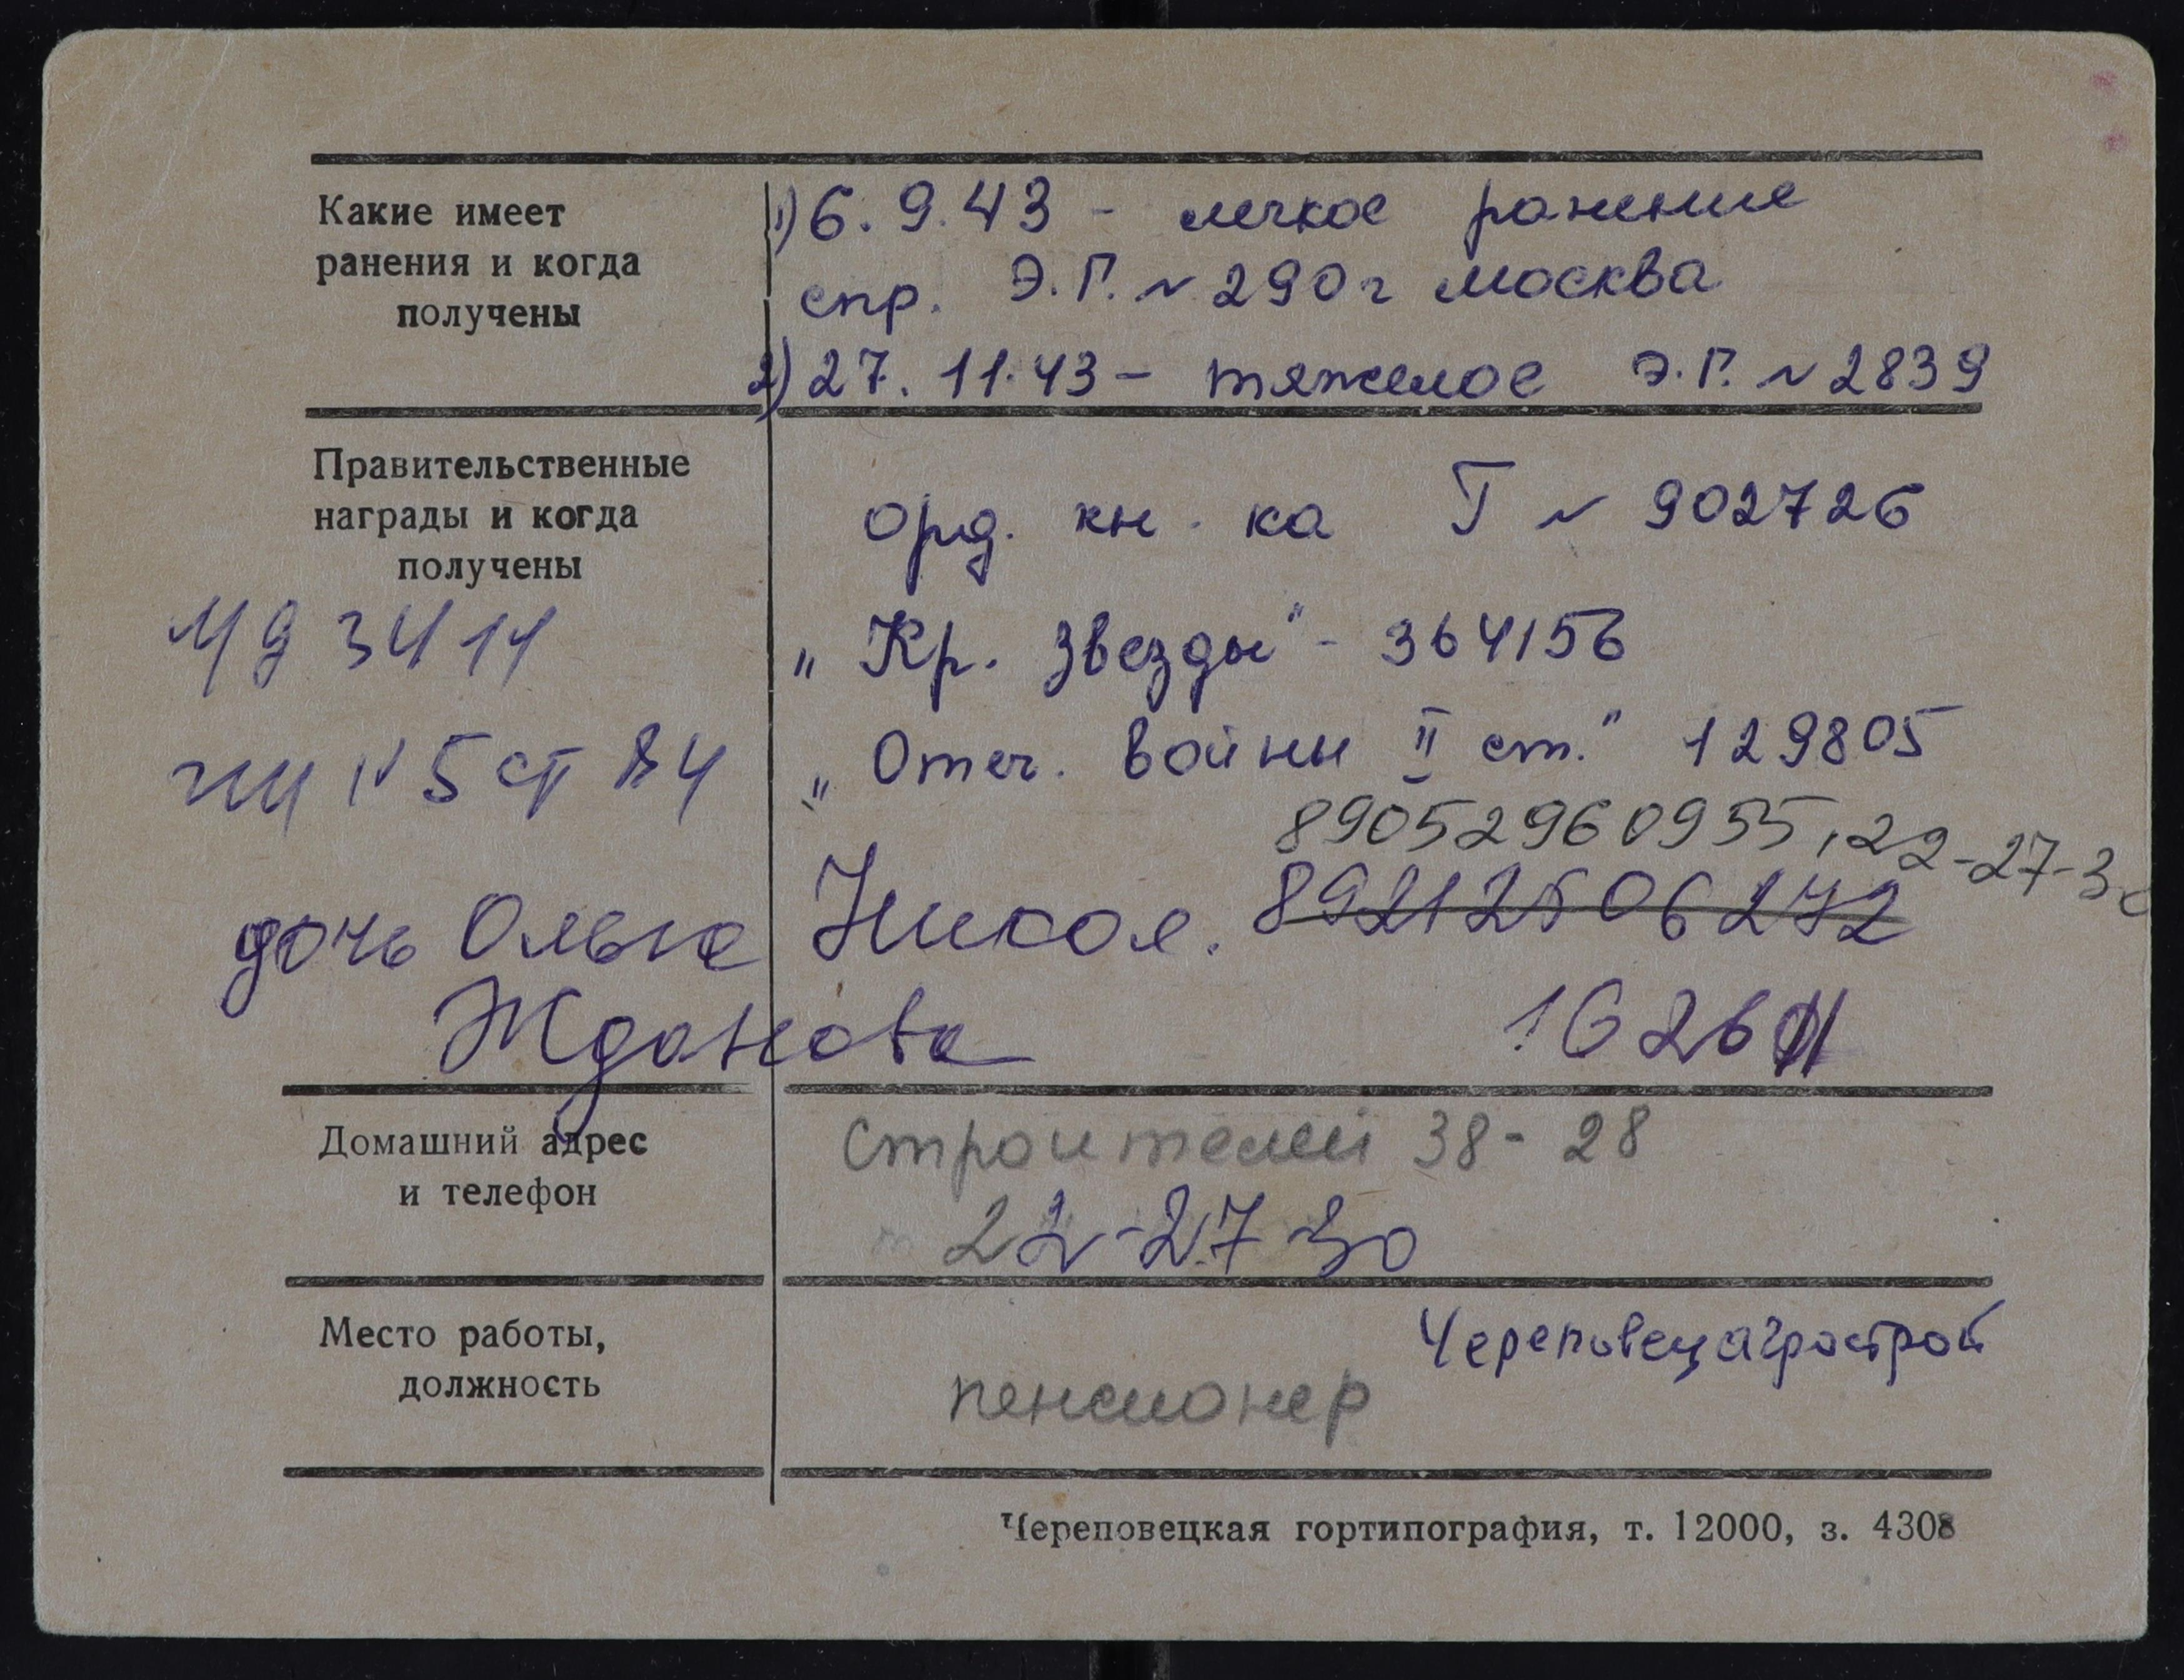 Какие имеет
ранения и когда
получены
1) 6.9.43 - легкое ранение
спр. Э.Г. N 290 г Москва
2) 27.11.43 - тяжелое Э.Г. N 2839
Правительственные
награды и когда
получены
орд. кн. ка Г N 902726
„ Кр. Звезды" - 364156
„ Отеч. войны II ст." 129805
89052960955, 22-27-3
дочь Ольга Никол. 89212506272
Жданова
Домашний адрес
и телефон
Строителей 38-28
22-27 30
Место работы,
должность
Череповецагрострой
пенсионер
Череповецкая гортипография, т. 12000, з. 4308